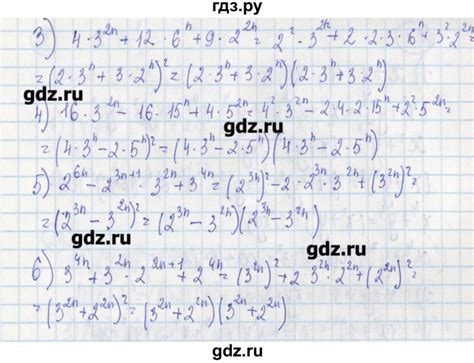 гдз.ру
3) 4·3²ⁿ + 12·6ⁿ + 9·2²ⁿ = 2²·3²ⁿ + 2·2·3·6ⁿ + 3²·2²ⁿ
= (2·3ⁿ + 3·2ⁿ)² = (2·3ⁿ + 3·2ⁿ)(2·3ⁿ + 3·2ⁿ)
gdz.ru gdz.ru
4) 16·3²ⁿ - 16·15ⁿ + 4·5²ⁿ = 4²·3²ⁿ - 2·4·2·15ⁿ + 2²·5²ⁿ =
= (4·3ⁿ - 2·5ⁿ)² = (4·3ⁿ - 2·5ⁿ)(4·3ⁿ - 2·5ⁿ)
gdz.ru
5) 2⁶ⁿ - 2³ⁿ⁺¹·3²ⁿ + 3⁴ⁿ = (2³ⁿ)² - 2·2³ⁿ·3²ⁿ + (3²ⁿ)² =
= (2³ⁿ - 3²ⁿ)² = (2³ⁿ - 3²ⁿ)(2³ⁿ - 3²ⁿ)
gdz.ru gdz.ru
6) 3⁴ⁿ + 3²ⁿ·2²ⁿ⁺¹ + 2⁴ⁿ = (3²ⁿ)² + 2·3²ⁿ·2²ⁿ + (2²ⁿ)² =
= (3²ⁿ + 2²ⁿ)² = (3²ⁿ + 2²ⁿ)(3²ⁿ + 2²ⁿ)
gdz.ru